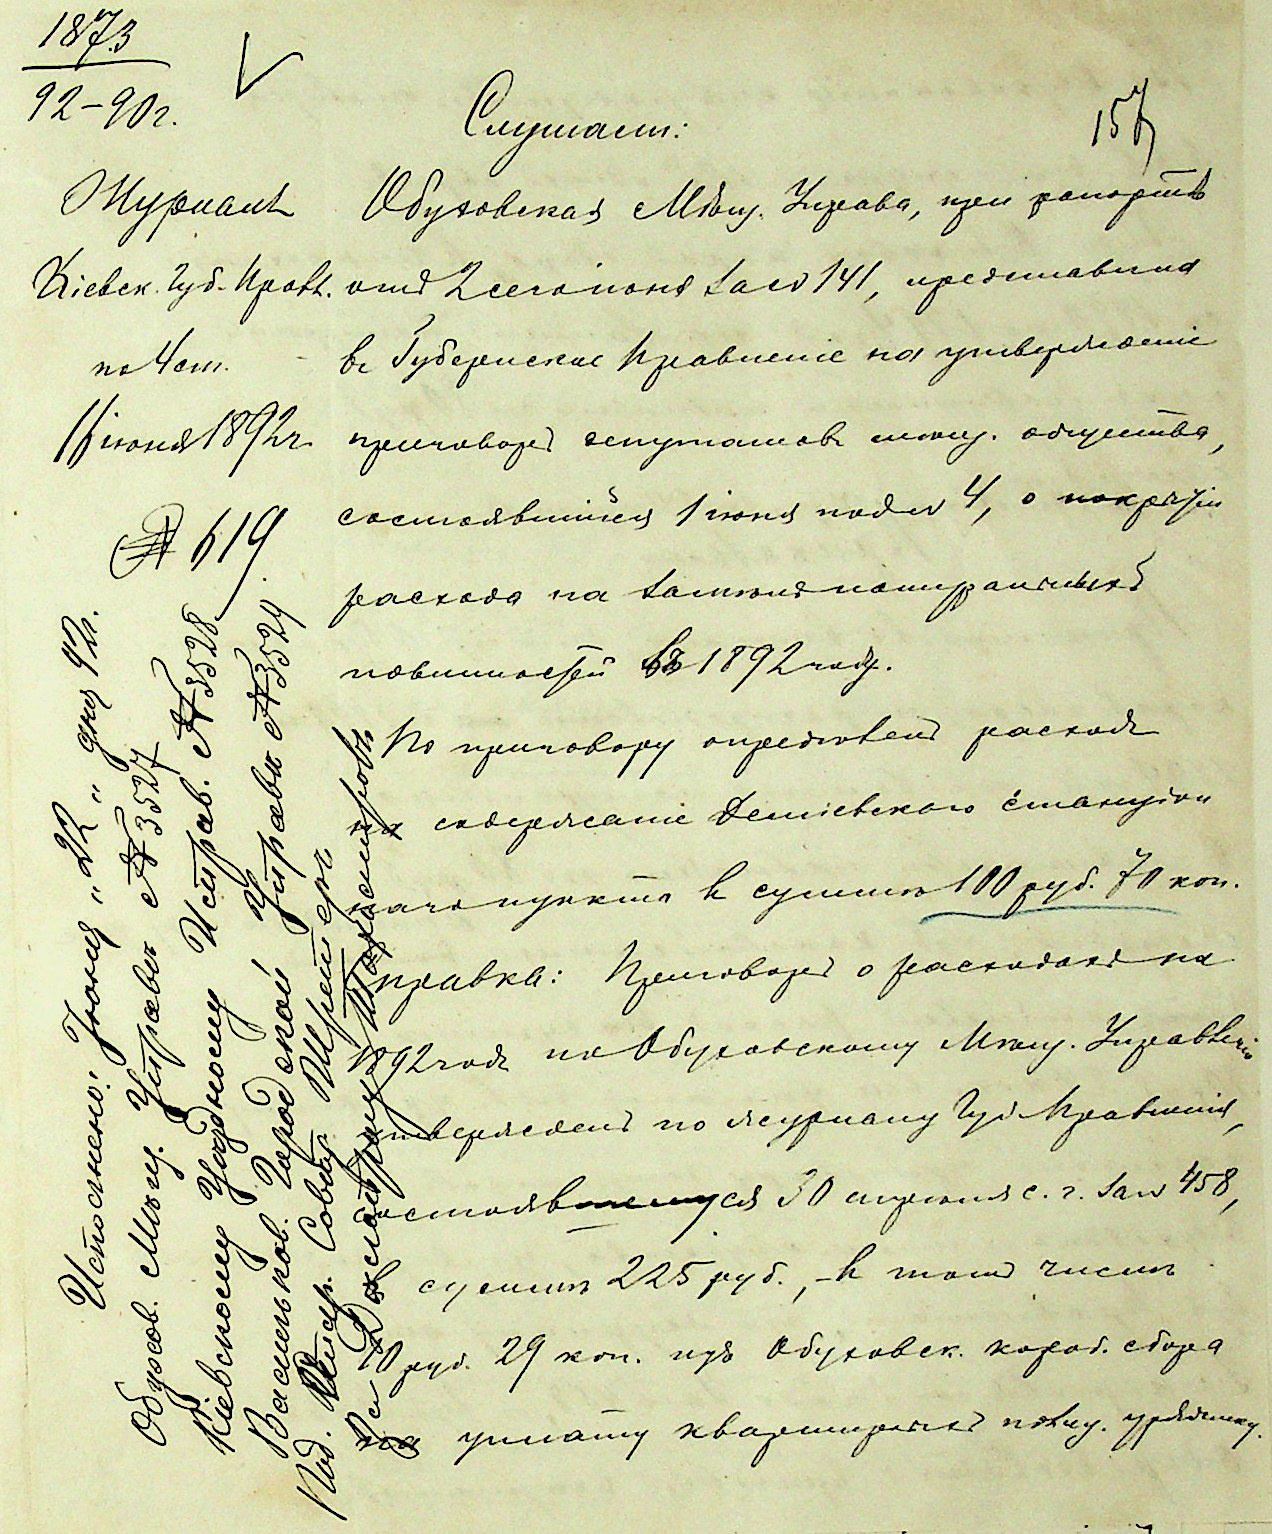 1873
92-90 г.
157
Слушали:
Журналъ
Кіевск. Губ. Правл.
по 4 ст.
16 іюня 1892 г.
№ 619
Обуховская Мѣщ. Управа, при рапортѣ
отъ 2 сего іюня за № 141, представила
въ Губернское Правленіе на утвержденіе
приговоръ депутатовъ мѣщ. общества,
состоявшійся 1 іюня подъ № 4, о покрытіи
расхода на
повинностей въ 1892 году.
По приговору опредѣленъ расходъ
на содержаніе Деміевского
наго пункта въ суммѣ 100 руб. 70 коп.
Справка: Приговоръ о расходахъ на
1892 годъ по Обуховскому Мѣщ. Управленію
утвержденъ по журналу Губ. Правленія,
состоявшемуся 30 апрѣля с. г. за № 458,
въ суммѣ 225 руб., - въ томъ числѣ
70 руб. 29 коп. изъ Обуховск. короб. сбора
на уплату квартирныхъ полиц. уряднику.
Исполнено: Іюня „22" дня 92 г.
Обухов. Мѣщ. Управѣ № 3527
Кіевскому Уѣздному Исправ. № 3528
Васильков. Городской Управѣ № 3529
Под. Совѣт.